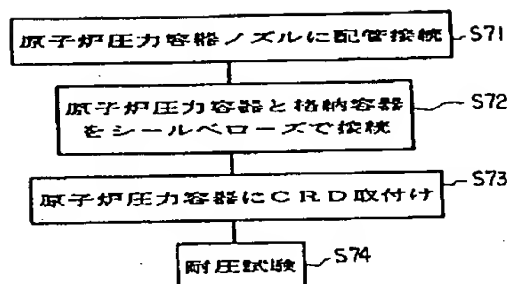 原子炉圧力容器ノズルに配管接続
S71
原子炉圧力容器と格納容器
をシールベローズで接続
S72
原子炉圧力容器にCRD取付け
S73
耐圧試験
S74